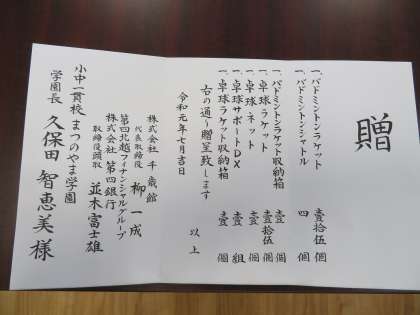 贈
一、バドミントンラケット 壹拾伍個
一、バドミントンシャトル 四個
一、バドミントンラケット収納箱 壹個
一、卓球ラケット 壹拾伍個
一、卓球ネット 壹個
一、卓球サポートDX 壹組
一、卓球ラケット収納箱 壹個
右の通り贈呈致します
以上
令和元年七月吉日
株式会社 千歳館
代表取締役 柳一成
第四北越フィナンシャルグループ
株式会社 第四銀行
取締役頭取 並木富士雄
小中一貫校 まつのやま学園
学園長 久保田智恵美様